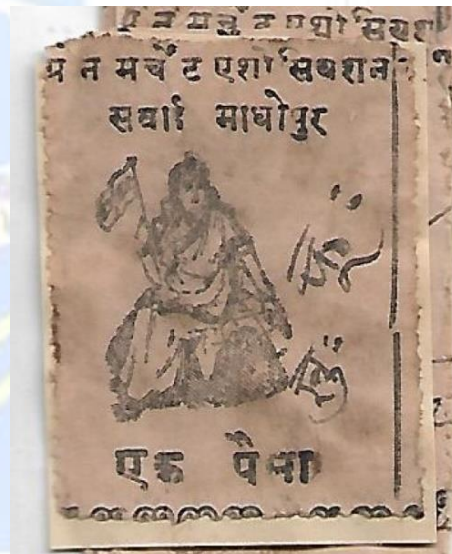 ग्रे न मर्चें ट एशो सियशन
सवाई माधोपुर
एक पैसा